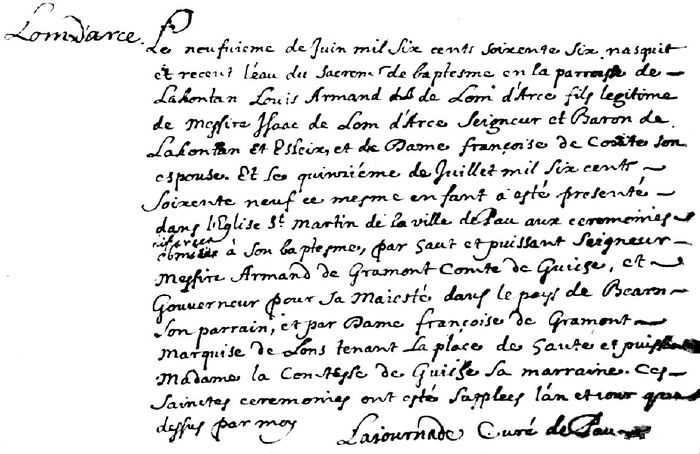 Lom d'arce.
Le neufuieme de Juin mil six cents soixente six nasquit
et receut l'eau du sacremt de baptesme en la parroisse de
Lahontan Louis Armand de Lom d'Arce fils legitime
de Messire Isaac de Lom d'Arce Seigneur et Baron de
Lahontan et Esseix, et de Dame françoise de Couttes son
espouse. Et le quinziéme de Juillet mil six cents
soixente neuf ce mesme enfant a esté presenté
dans l'Eglise St. Martin de la ville de Pau aux ceremonies
obmises à son baptesme, par haut et puissant Seigneur
Messire Armand de Gramont Comte de Guisse, et
Gouverneur pour sa Maiesté dans le pays de Bearn
son parrain, et par Dame françoise de Gramont
Marquise de Lons tenant la place de haute et puissante
Madame la Contesse de Guisse sa marraine. Ces
sainctes ceremonies ont esté supplees l'an et iour que
dessus par moy
Lajournade Curé de Pau